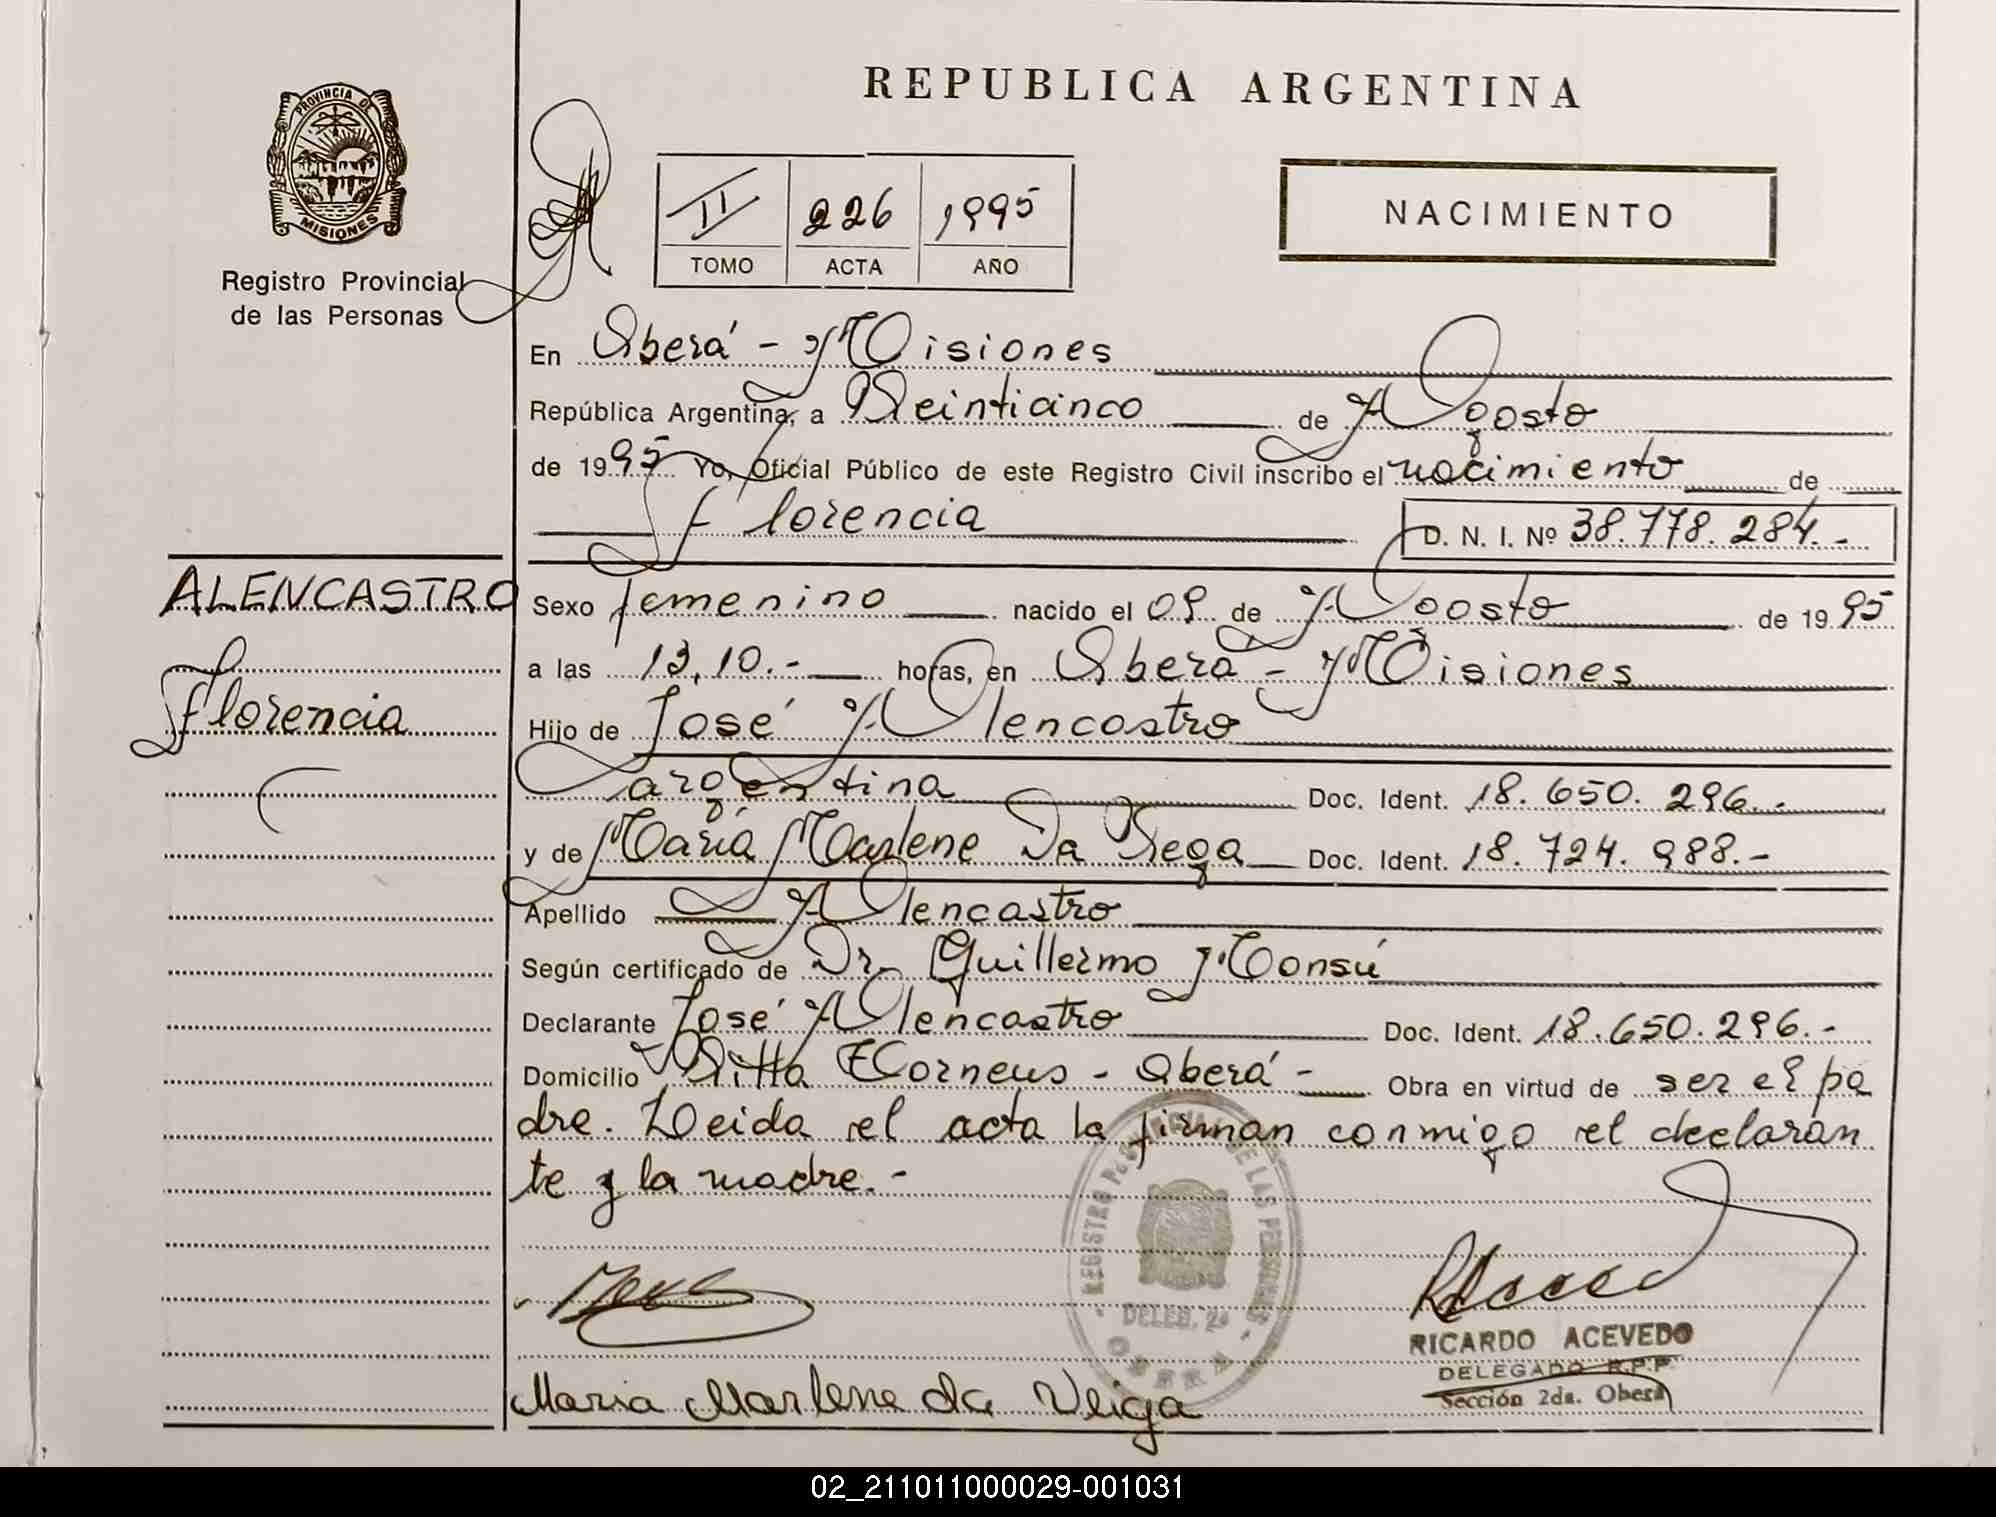 REPUBLICA ARGENTINA
PROVINCIA DE
MISIONES
Registro Provincial
de las Personas
II 226 1995
TOMO ACTA AÑO
NACIMIENTO
En Oberá - Misiones
República Argentina, a Veinticinco de Agosto
de 1995 Yo, Oficial Público de este Registro Civil inscribo el nacimiento de
Florencia
D. N. I. Nº 38.778.284.-
ALENCASTRO
Florencia
Sexo femenino nacido el 09 de Agosto de 1995
a las 13,10.- horas, en Oberá - Misiones
Hijo de José Alencastro
argentina Doc. Ident. 18.650.296.-
y de María Marlene Da Vega Doc. Ident. 18.724.988.-
Apellido Alencastro
Según certificado de Dr. Guillermo Monsú
Declarante José Alencastro Doc. Ident. 18.650.296.-
Domicilio Villa Corneus - Oberá - Obra en virtud de ser el pa
dre. Leida el acta la firman conmigo el declaran
te y la madre.-
REGISTRO PCIAL DE LAS PERSONAS
DELEG. 2ª
OBERA
RICARDO ACEVEDO
DELEGADO R.P.P.
Sección 2da. Oberá
Maria Marlene da Veiga
02_211011000029-001031